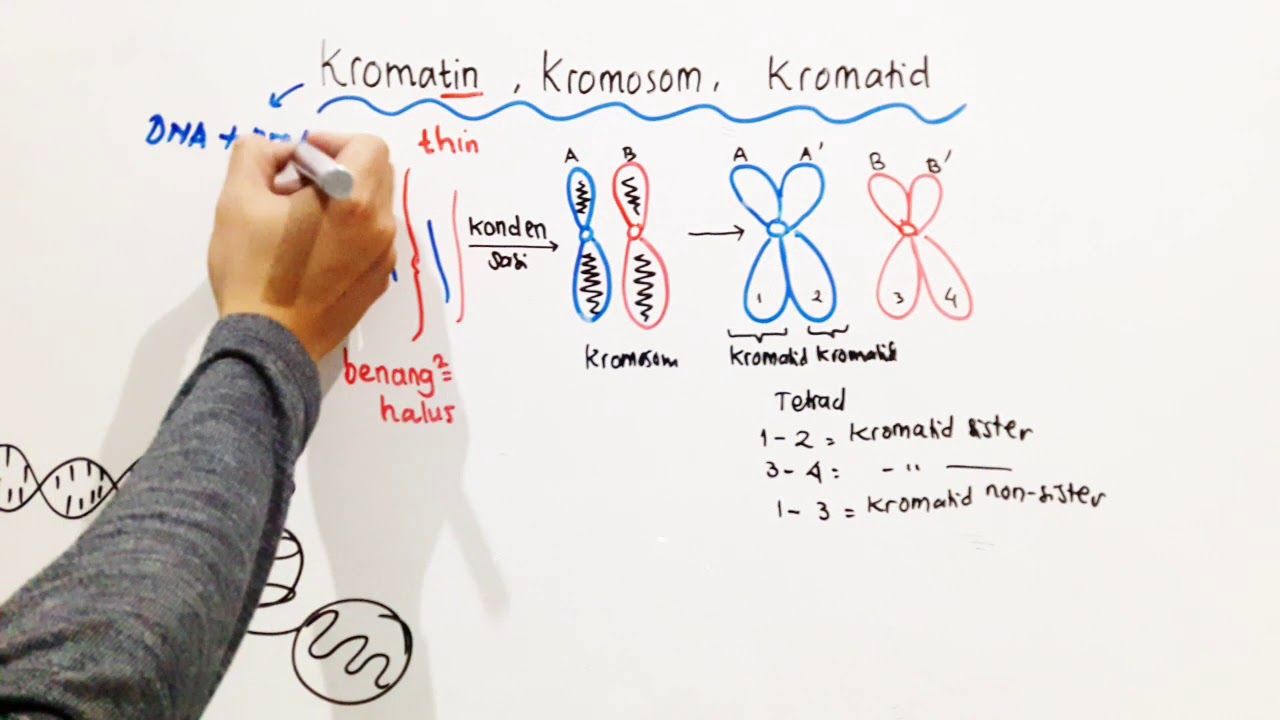 Kromatin , Kromosom, Kromatid
DNA +
thin
A B A A' B B'
konden
sasi
1 2 3 4
Kromosom
kromatid kromatid
benang²=
halus
Tetrad
1 - 2 = Kromatid sister
3 - 4 = - " —
1 - 3 = kromatid non-sister